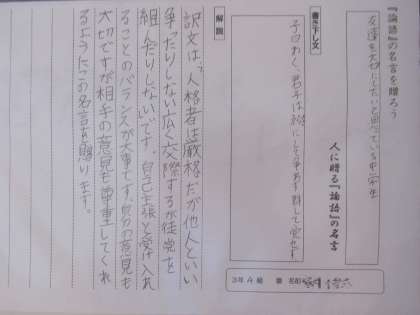 『論語』の名言を贈ろう
友達を大切にしたいと思っている中学生
人に贈る『論語』の名言
書き下し文
子曰わく、君子は矜にして争わず、群して党せず。
解説
訳文は「人格者は厳格だが他人といい
争ったりしない広く交際するが徒党を
組んだりしない」です。自己主張と受け入れ
ることのバランスが大事です。自分の意見も
大切ですが相手の意見も尊重してくれ
るようにこの名言を贈ります。
3年 A 組 番 名前